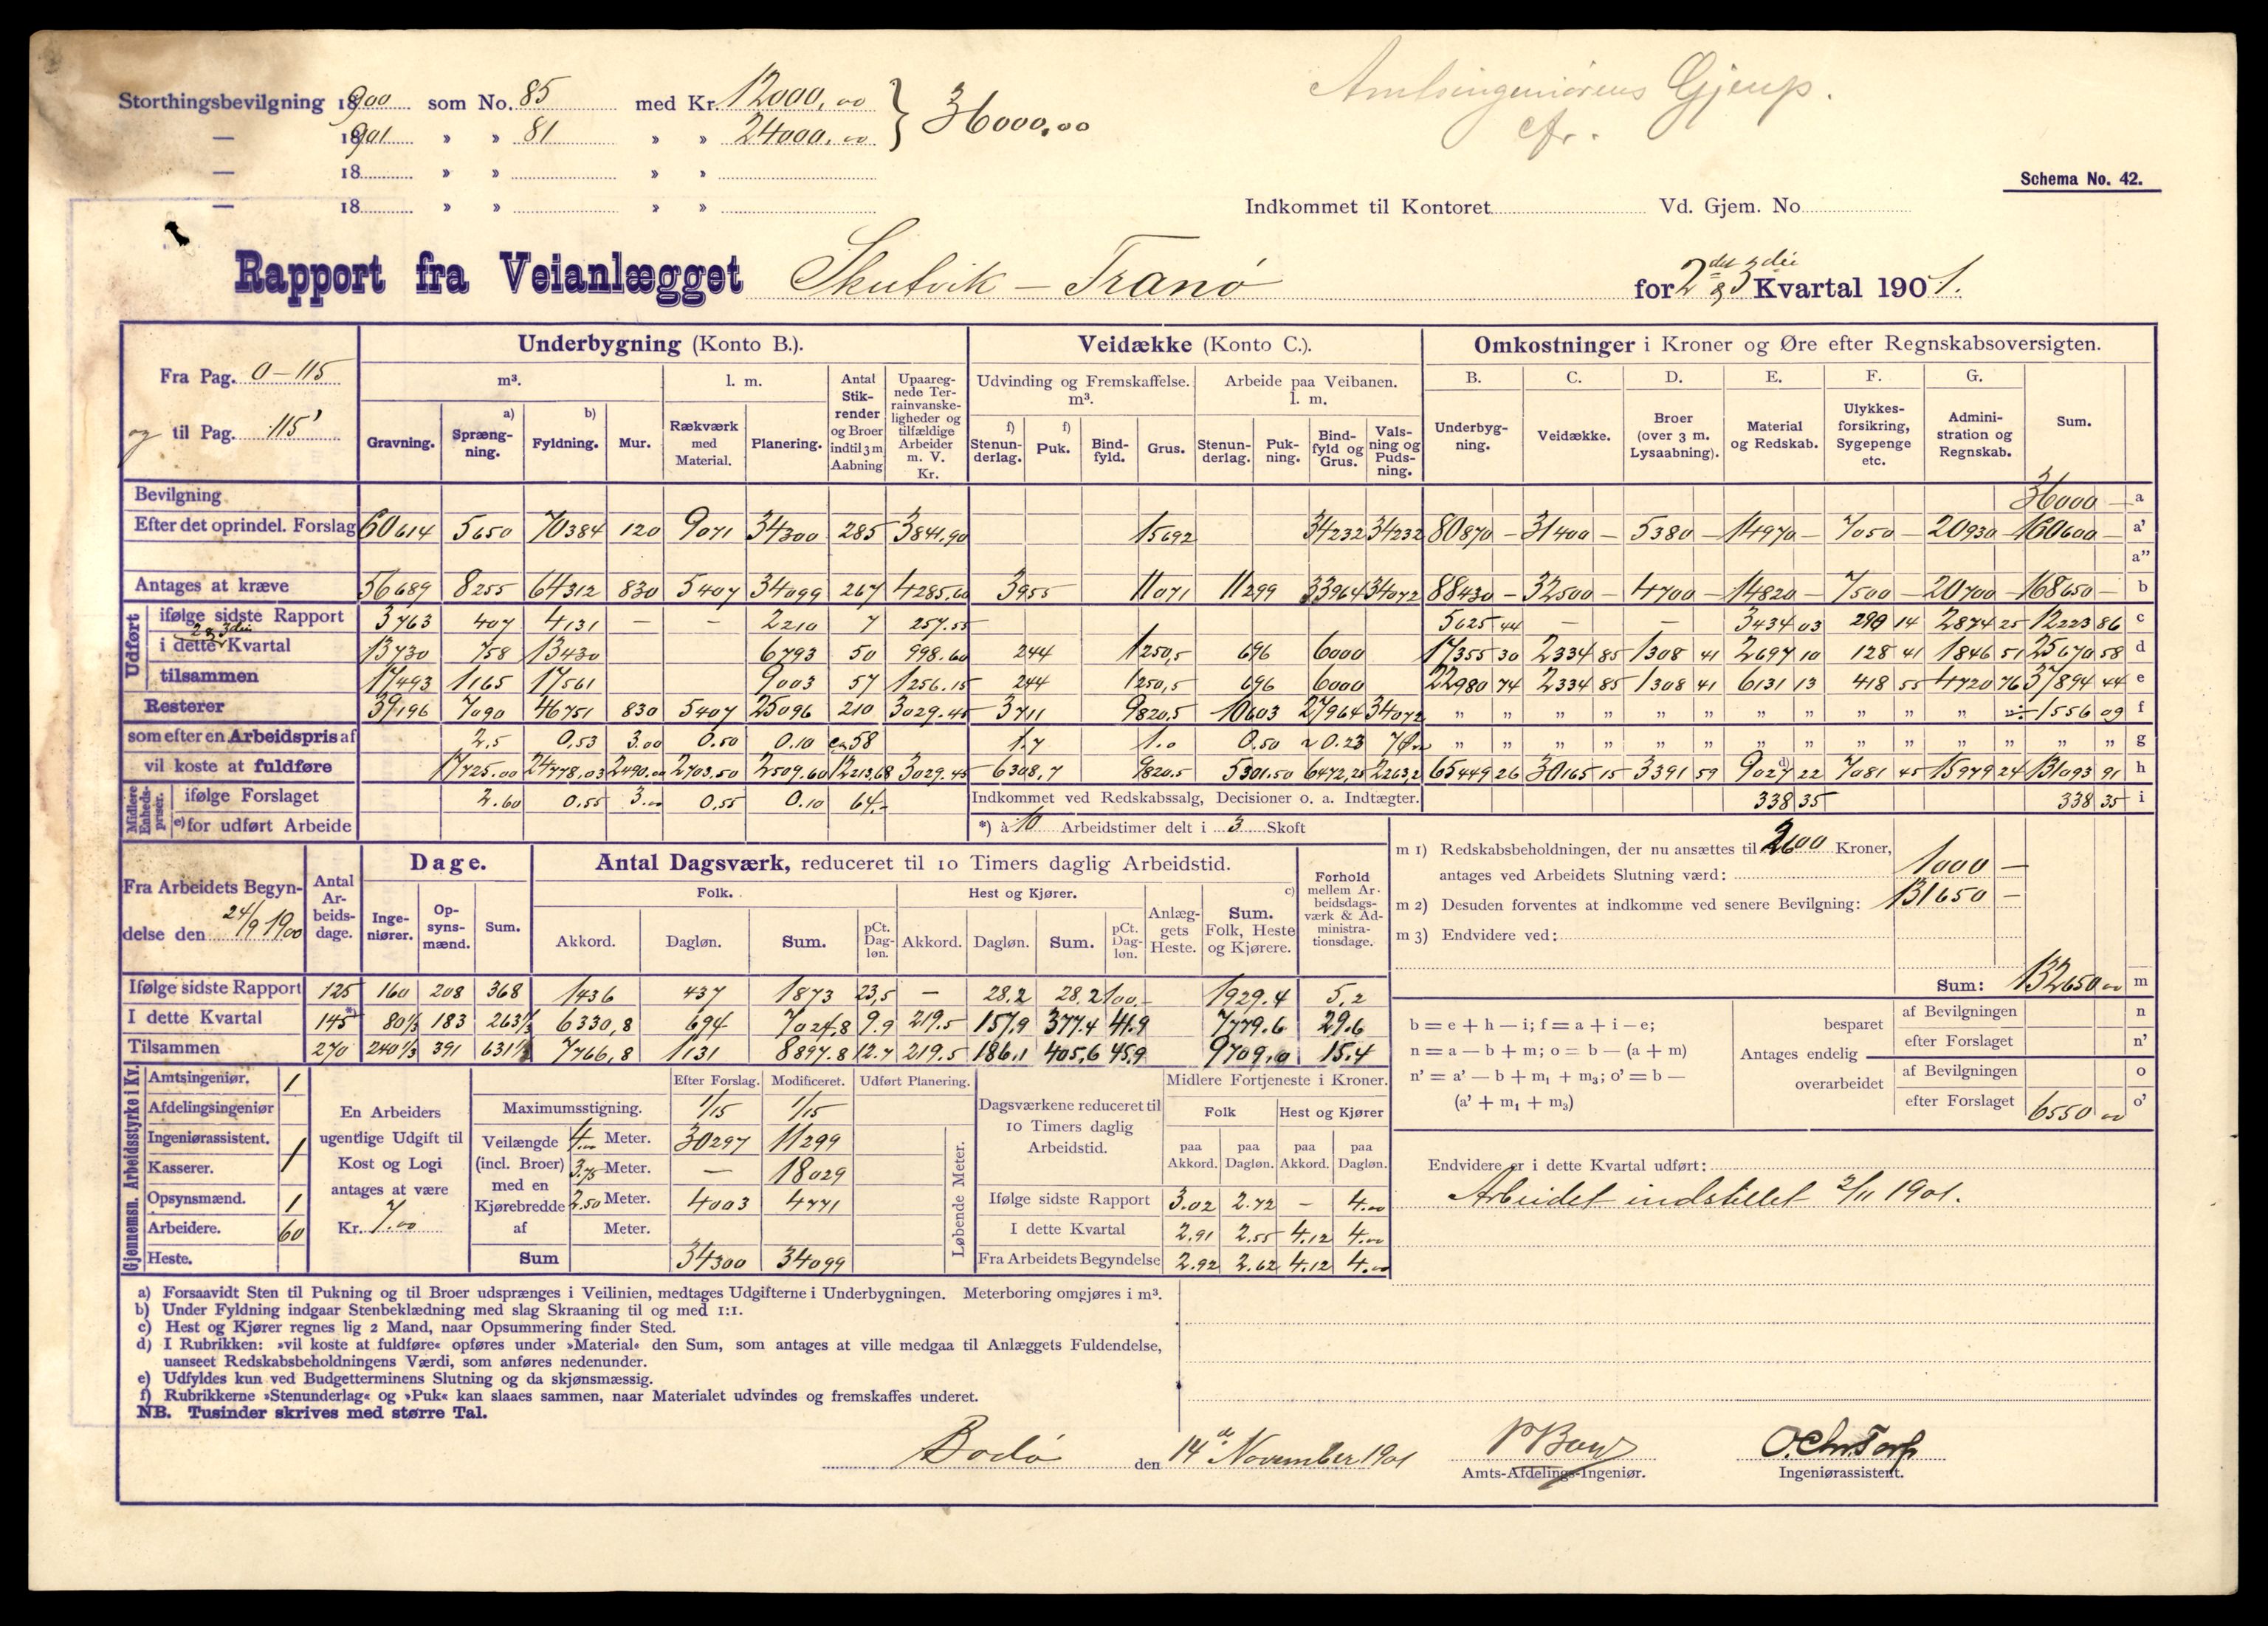 Storthingsbevilgning 1900 som No. 85 med Kr. 12000,00 } 36000,00
— 1901 » » 81 » » 24000,00
— 18 » » » »
— 18 » » » »
Amtsingeniørens Gjenp.
cfr.
Schema No. 42.
Indkommet til Kontoret Vd. Gjem. No
Rapport fra Veianlægget Skutvik – Tranø for 2det & 3die Kvartal 1901.
Fra Pag. 0–115
og til Pag. 115'
Underbygning (Konto B.). Veidække (Konto C.). Omkostninger i Kroner og Øre efter Regnskabsoversigten.
m³. l. m. Antal Stikrender og Broer indtil 3 m Aabning Upaaregnede Terrainvanskeligheder og tilfældige Arbeider m. V. Kr. Udvinding og Fremskaffelse. m³. Arbeide paa Veibanen. l. m. B. C. D. E. F. G.
Gravning. a) Sprængning. b) Fyldning. Mur. Rækværk med Material. Planering. f) Stenunderlag. f) Puk. Bindfyld. Grus. Stenunderlag. Pukning. Bindfyld og Grus. Valsning og Pudsning. Underbygning. Veidække. Broer (over 3 m. Lysaabning). Material og Redskab. Ulykkesforsikring, Sygepenge etc. Administration og Regnskab. Sum.
Bevilgning 36000 — a
Efter det oprindel. Forslag 60614 5650 70384 120 9071 34300 285 3841.90 15692 34232 34232 80870 — 31400 — 5380 — 14970 — 7050 — 20930 — 160600 — a'
a"
Antages at kræve 56689 8255 64312 830 5407 34099 267 4285.60 3955 11071 11299 33964 34072 88430 — 32500 — 4700 — 14820 — 7500 — 20700 — 168650 — b
Udført
ifølge sidste Rapport 3763 407 4131 — — 2210 7 257.55 5625 44 — — 3434 03 290 14 2874 25 12223 86 c
i dette 2 & 3die Kvartal 13730 758 13430 6793 50 998.60 244 1250,5 696 6000 17355 30 2334 85 1308 41 2697 10 128 41 1846 51 25670 58 d
tilsammen 17493 1165 17561 9003 57 1256.15 244 1250,5 696 6000 22980 74 2334 85 1308 41 6131 13 418 55 4720 76 37894 44 e
Resterer 39196 7090 46751 830 5407 25096 210 3029.45 3711 9820,5 10603 27964 34072 » » » » » » » » » » » ÷ 1556 09 f
som efter en Arbeidspris af 2.5 0,53 3.00 0.50 0.10 ca 58 1.7 1.0 0.50 ~0.23 7 Øre » » » » » » » » » » » » » » g
vil koste at fuldføre 17725.00 24778.03 2490.00 2703.50 2509.60 12213,68 3029.45 6308,7 9820.5 5301.50 6472,25 2263,2 65449 26 30165 15 3391 59 d) 9027 22 7081 45 15979 24 131093 91 h
Midlere Enhedspriser.
ifølge Forslaget 2.60 0.55 3.00 0,55 0.10 64.- Indkommet ved Redskabssalg, Decisioner o. a. Indtægter. 338 35 338 35 i
e) for udført Arbeide *) à 10 Arbeidstimer delt i 3 Skoft
Fra Arbeidets Begyndelse den 24/9 1900
Antal Arbeidsdage. Dage. Antal Dagsværk, reduceret til 10 Timers daglig Arbeidstid. Forhold mellem Arbeidsdagsværk & Administrationsdage.
Folk. Hest og Kjører.
Ingeniører. Opsynsmænd. Sum. Akkord. Dagløn. Sum. pCt. Dagløn. Akkord. Dagløn. Sum. pCt. Dagløn. Anlæggets Heste. c) Sum. Folk, Heste og Kjørere.
Ifølge sidste Rapport 125 160 208 368 1436 437 1873 23,5 — 28.2 28,2 100.- 1929.4 5.2
I dette Kvartal 145*) 80⅓ 183 263⅓ 6330,8 694 7024.8 9.9 219.5 157.9 377.4 41.9 7779.6 29.6
Tilsammen 270 240⅓ 391 631⅓ 7766,8 1131 8897.8 12.7 219.5 186.1 405,6 45.9 9709.0 15.4
m 1) Redskabsbeholdningen, der nu ansættes til 2600 Kroner,
antages ved Arbeidets Slutning værd: 1000 —
m 2) Desuden forventes at indkomme ved senere Bevilgning: 131650 —
m 3) Endvidere ved:
Sum: 132650 00 m
b = e + h — i; f = a + i — e;
n = a — b + m; o = b — (a + m)
n' = a' — b + m₁ + m₃; o' = b —
(a' + m₁ + m₃)
Antages endelig
besparet af Bevilgningen n
efter Forslaget n'
overarbeidet af Bevilgningen o
efter Forslaget 6550 00 o'
Gjennemsn. Arbeidsstyrke i Kv.
Amtsingeniør. 1
Afdelingsingeniør
Ingeniørassistent. 1
Kasserer.
Opsynsmænd. 1
Arbeidere. 60
Heste.
En Arbeiders
ugentlige Udgift til
Kost og Logi
antages at være
Kr. 7.00
Efter Forslag. Modificeret. Udført Planering.
Maximumsstigning. 1/15 1/15
Veilængde (incl. Broer) med en Kjørebredde af
4.00 Meter. 30297 11299
3.75 Meter. — 18029
2.50 Meter. 4003 4771
Meter.
Sum 34300 34099
Løbende Meter.
Dagsværkene reduceret til
10 Timers daglig
Arbeidstid.
Midlere Fortjeneste i Kroner.
Folk Hest og Kjører
paa Akkord. paa Dagløn. paa Akkord. paa Dagløn.
Ifølge sidste Rapport 3.02 2.72 — 4.00
I dette Kvartal 2.91 2.55 4.12 4.00
Fra Arbeidets Begyndelse 2.92 2.62 4.12 4.00
Endvidere er i dette Kvartal udført:
Arbeidet indstillet 2/11 1901.
a) Forsaavidt Sten til Pukning og til Broer udsprænges i Veilinien, medtages Udgifterne i Underbygningen. Meterboring omgjøres i m³.
b) Under Fyldning indgaar Stenbeklædning med slag Skraaning til og med 1:1.
c) Hest og Kjører regnes lig 2 Mand, naar Opsummering finder Sted.
d) I Rubrikken: »vil koste at fuldføre« opføres under »Material« den Sum, som antages at ville medgaa til Anlæggets Fuldendelse,
uanseet Redskabsbeholdningens Værdi, som anføres nedenunder.
e) Udfyldes kun ved Budgetterminens Slutning og da skjønsmæssig.
f) Rubrikkerne »Stenunderlag« og »Puk« kan slaaes sammen, naar Materialet udvindes og fremskaffes underet.
NB. Tusinder skrives med større Tal.
Bodö den 14de November 1901
Amts-Afdelings-Ingeniør.
O. Chr. Torp
Ingeniørassistent.